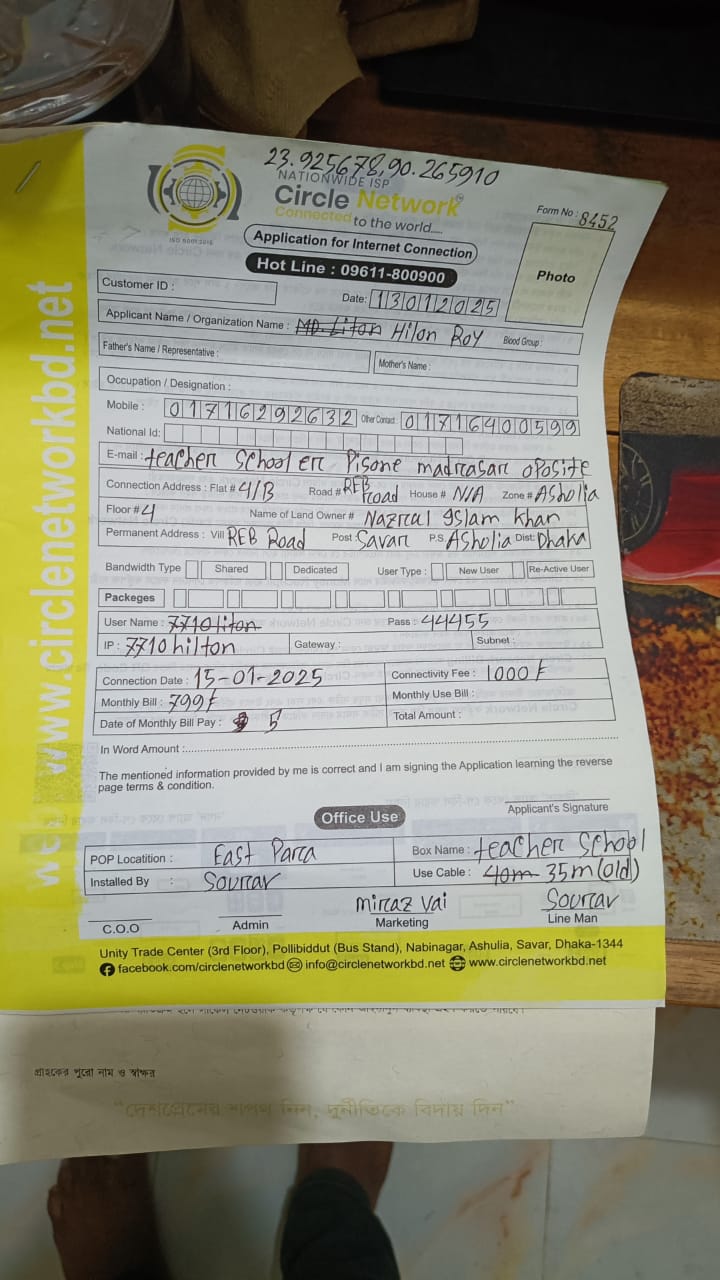 23.925678,90.265910
NATIONWIDE ISP
Circle Network
Connected to the world....
ISO 9001:2015
Form No : 8452
Application for Internet Connection
Hot Line : 09611-800900
Photo
Customer ID :
Date: 13012025
Applicant Name / Organization Name : MD. Liton Hilon Roy Blood Group :
Father's Name / Representative :
Mother's Name :
Occupation / Designation :
Mobile : 01716292632 Other Contact: 01716400599
National Id:
E-mail : teacher School er Pisone madrasar oposite
Connection Address : Flat # 4/B Road # REB road House # N/A Zone # Asholia
Floor # 4 Name of Land Owner # Nazrul Islam Khan
Permanent Address : Vill REB Road Post : Savar P.S. Asholia Dist: Dhaka
Bandwidth Type Shared Dedicated User Type : New User Re-Active User
Packeges
User Name : 7710liton Pass : 44455
IP : 7710hilton Gateway : Subnet :
Connection Date : 15-01-2025 Connectivity Fee : 1000 ৳
Monthly Bill : 799৳ Monthly Use Bill :
Date of Monthly Bill Pay : 5 Total Amount :
In Word Amount :
The mentioned information provided by me is correct and I am signing the Application learning the reverse
page terms & condition.
Applicant's Signature
Office Use
POP Locatition : East Para Box Name : teacher School
Installed By : Sourav Use Cable : 40m 35m (old)
C.O.O
Admin
miraz vai
Marketing
Sourav
Line Man
Unity Trade Center (3rd Floor), Pollibiddut (Bus Stand), Nabinagar, Ashulia, Savar, Dhaka-1344
facebook.com/circlenetworkbd info@circlenetworkbd.net www.circlenetworkbd.net
www.circlenetworkbd.net
গ্রাহকের পুরো নাম ও স্বাক্ষর
"দেশপ্রেমের শপথ নিন, দুর্নীতিকে বিদায় দিন"